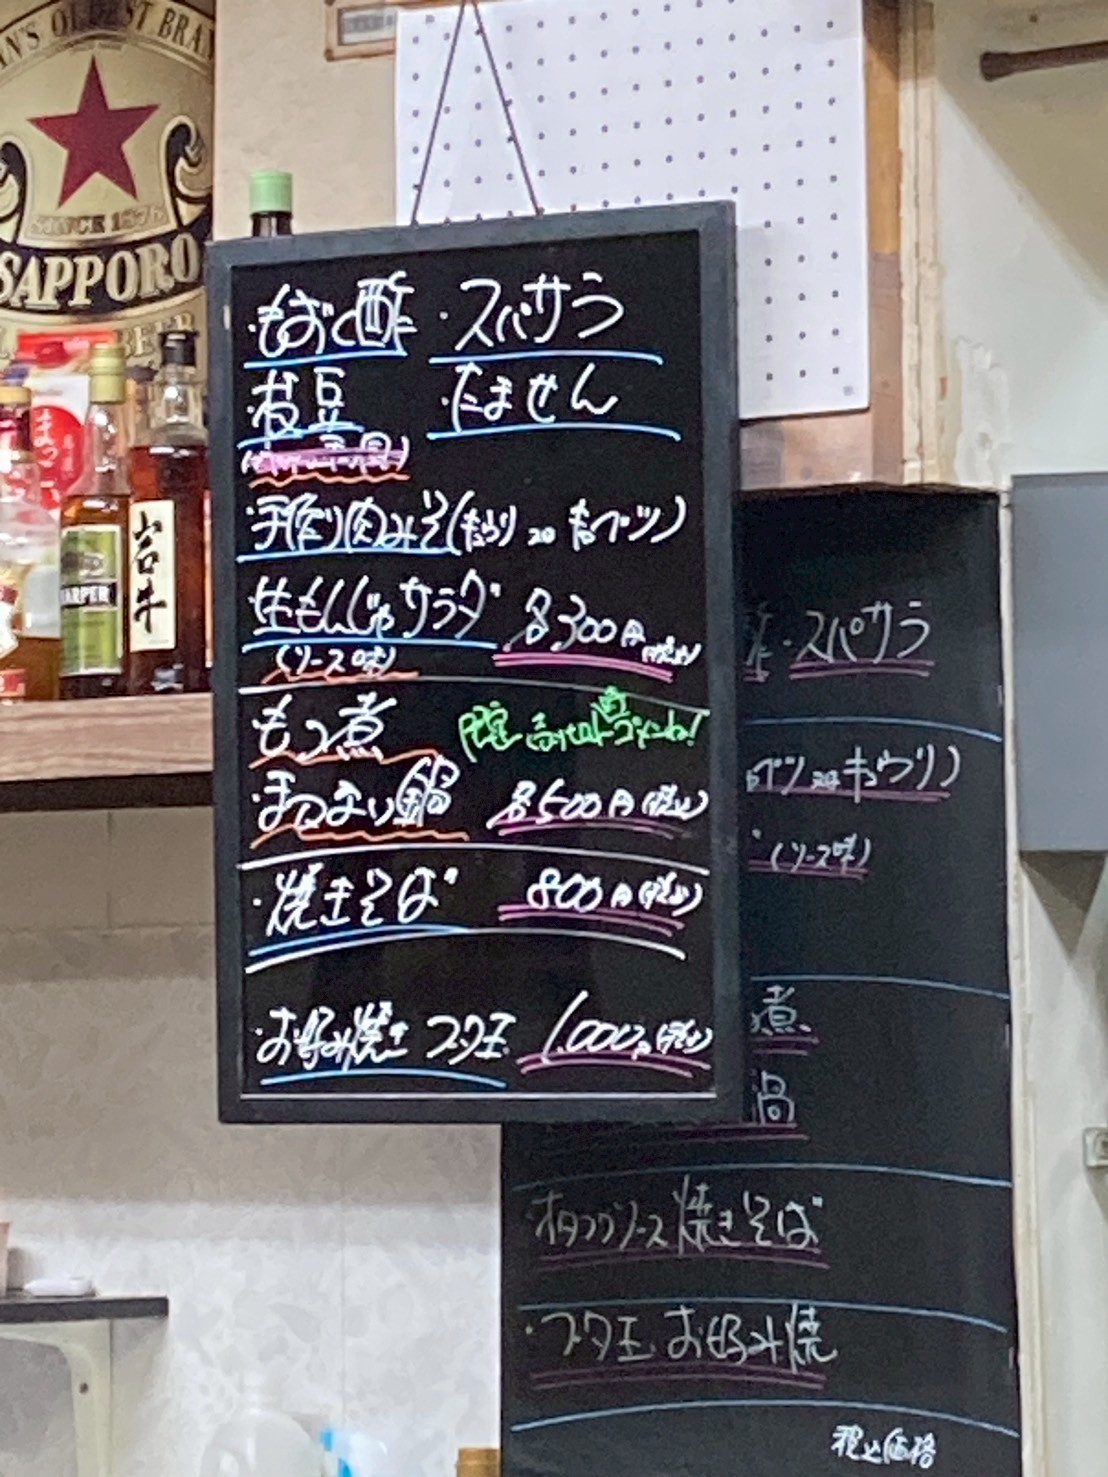 AN'S OLDEST BRA
SINCE 1876
SAPPORO
BEER
HARPER
・もずく酢 ・スパサラ
・枝豆 ・たません
・手作り肉みそ(きゅうり or キャベツ)
・生もんじゃサラダ 各300円(税込)
(ソース味)
・もつ煮 限定 売り切れ ゴメンね!
鍋 各500円(税込)
・焼きそば 800円(税込)
・お好み焼き ブタ玉 1,000円(税込)
酢・スパサラ
ベツ or キュウリ)
(ソース味)
煮
鍋
ソース焼きそば
・ブタ玉 お好み焼
税込価格